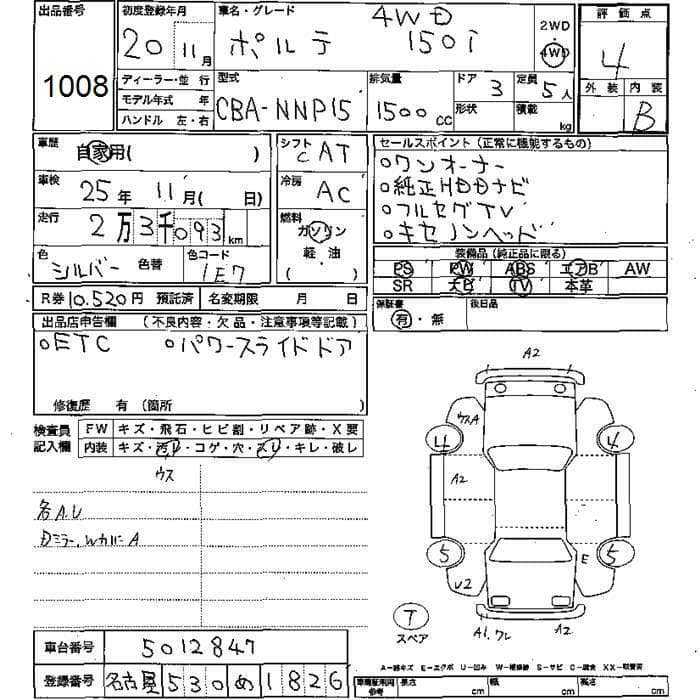 出品番号 初度登録年月 車名・グレード 評価点
1008 20 11月 ポルテ 4WD 150i 2WD 4WD 4
ディーラー・並行 型式 排気量 ドア 3 定員 5人 外装 内装
モデル年式 年 CBA-NNP15 1500CC 形状 積載 kg B
ハンドル 左・右
車歴 自家用( ) シフト C AT セールスポイント(正常に機能するもの)
車検 25年 11月( 日) 冷房 AC ○ワンオーナー
○純正HDDナビ
走行 2万3千093km 燃料 ガソリン ○フルセグTV
軽油 ○キセノンヘッド
色 シルバー 色替 色コード 1E7 ( ) 装備品(純正品に限る)
PS PW ABS エアB AW
SR ナビ TV 本革
R券 10,520円 預託済 名変期限 月 日 保証書 後日品
有・無
出品店申告欄 (不良内容・欠品・注意事項等記載)
○ETC ○パワースライドドア
修復歴 有(箇所
検査員 FW キズ・飛石・ヒビ割・リペア跡・X要
記入欄 内装 キズ・汚レ・コゲ・穴・スレ・キレ・破レ
ウス
各A.U
Dミラー,WカバーA
A2
ウスA
4 4
A2
5 5
U2 E
T
スペア A1.ワレ A2
車台番号 5012847
A-線キズ E-エクボ U-凹み W-補修跡 S-サビ C-腐食 XX-取替済
登録番号 名古屋 530 め 1826 参考 長さ cm 幅 cm 高さ cm